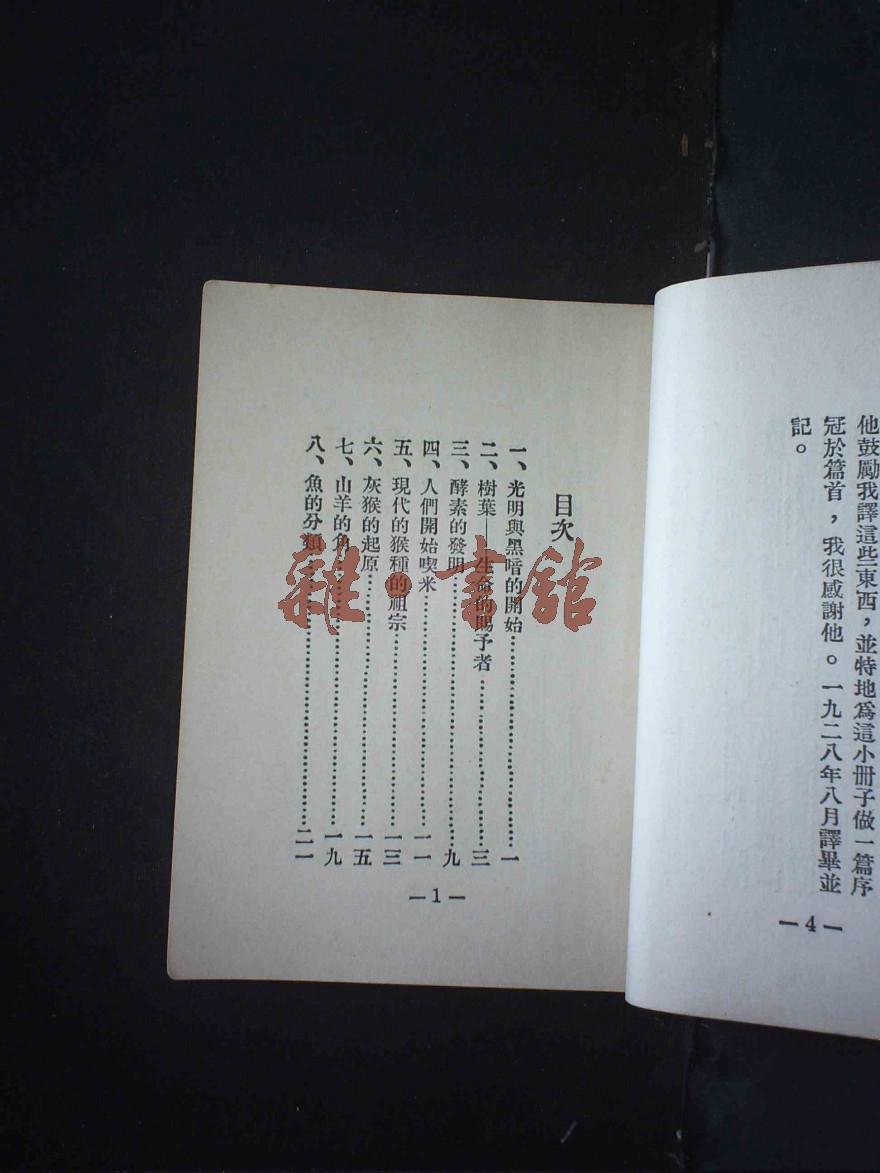 他鼓勵我譯這些東西，並特地爲這小冊子做一篇序
冠於篇首，我很感謝他。一九二八年八月譯畢並
記。
—4—
目次
一、光明與黑暗的開始……一
二、樹葉—生命的賜予者……三
三、酵素的發明……九
四、人們開始喫米……一一
五、現代的猴種的祖宗……一三
六、灰猴的起原……一五
七、山羊的角……一九
八、魚的分類……二一
—1—
雜·書館